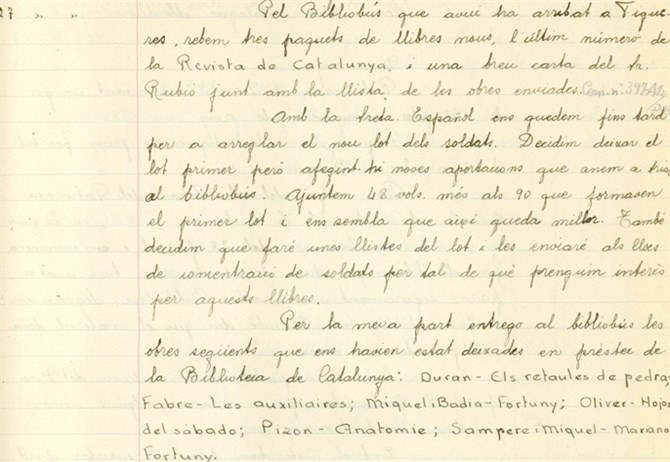 27 " " Pel Bibliobús que avui ha arribat a Figue-
res, rebem tres paquets de llibres nous, l'últim número de
la Revista de Catalunya, i una breu carta del Sr.
Rubió junt amb la llista de les obres enviades. Com. nº 397A1,
Amb la Sreta. Español ens quedem fins tard
per a arreglar el nou lot dels soldats. Decidim deixar el
lot primer però afegint-hi noves aportacions que anem a triar
al bibliobús. Ajuntem 48 vols. més als 90 que formaven
el primer lot i ens sembla que així queda millor. També
decidim que faré unes llistes del lot i les enviaré als llocs
de concentració de soldats per tal de què prenguin interès
per aquests llibres.
Per la meva part entrego al bibliobús les
obres següents que ens havien estat deixades en préstec de
la Biblioteca de Catalunya: Duran - Els retaules de pedra;
Fabre - Les auxiliaires; Miquel i Badia - Fortuny; Oliver - Hojas
del sábado; Pizon - Anatomie; Sampere i Miquel - Mariano
Fortuny.